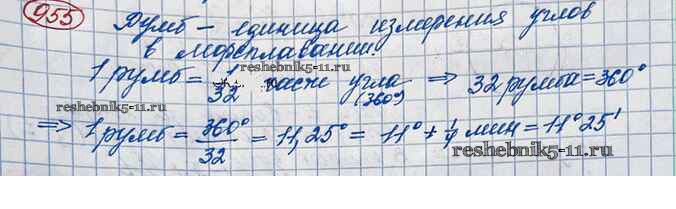 955 Румб - единица измерения углов
в мореплавании
1 румб = 1/32 части угла (360°) ⇒ 32 румба = 360°
reshebnik5-11.ru
reshebnik5-11.ru
⇒ 1 румб = 360°/32 = 11,25° = 11° + 1/4 мин = 11°25'
reshebnik5-11.ru